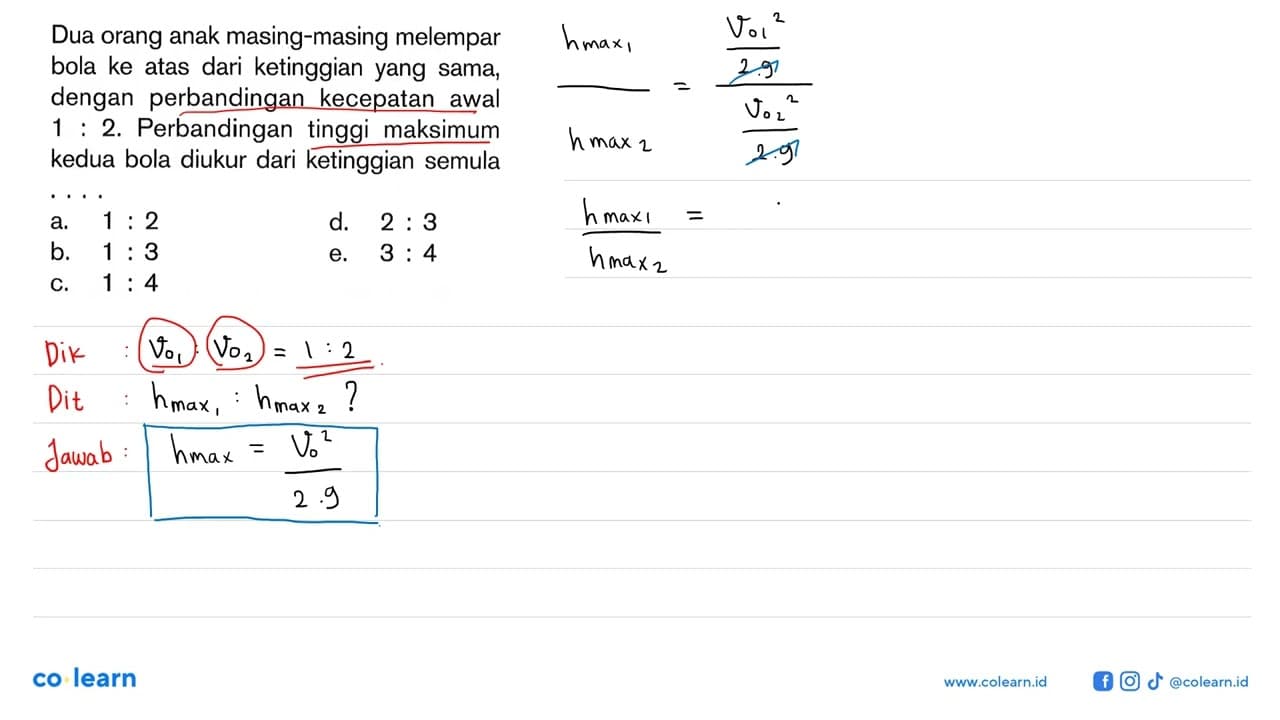 Dua orang anak masing-masing melempar
bola ke atas dari ketinggian yang sama,
dengan perbandingan kecepatan awal
1 : 2. Perbandingan tinggi maksimum
kedua bola diukur dari ketinggian semula
. . . .
a. 1 : 2
b. 1 : 3
c. 1 : 4
d. 2 : 3
e. 3 : 4
Dik : Vo1 : Vo2 = 1 : 2
Dit : hmax1 : hmax2 ?
Jawab : hmax = Vo²
2 . g
hmax1 = Vo1²
2 . g
hmax2 Vo2²
2 . g
hmax1 =
hmax2
co learn
www.colearn.id
@colearn.id